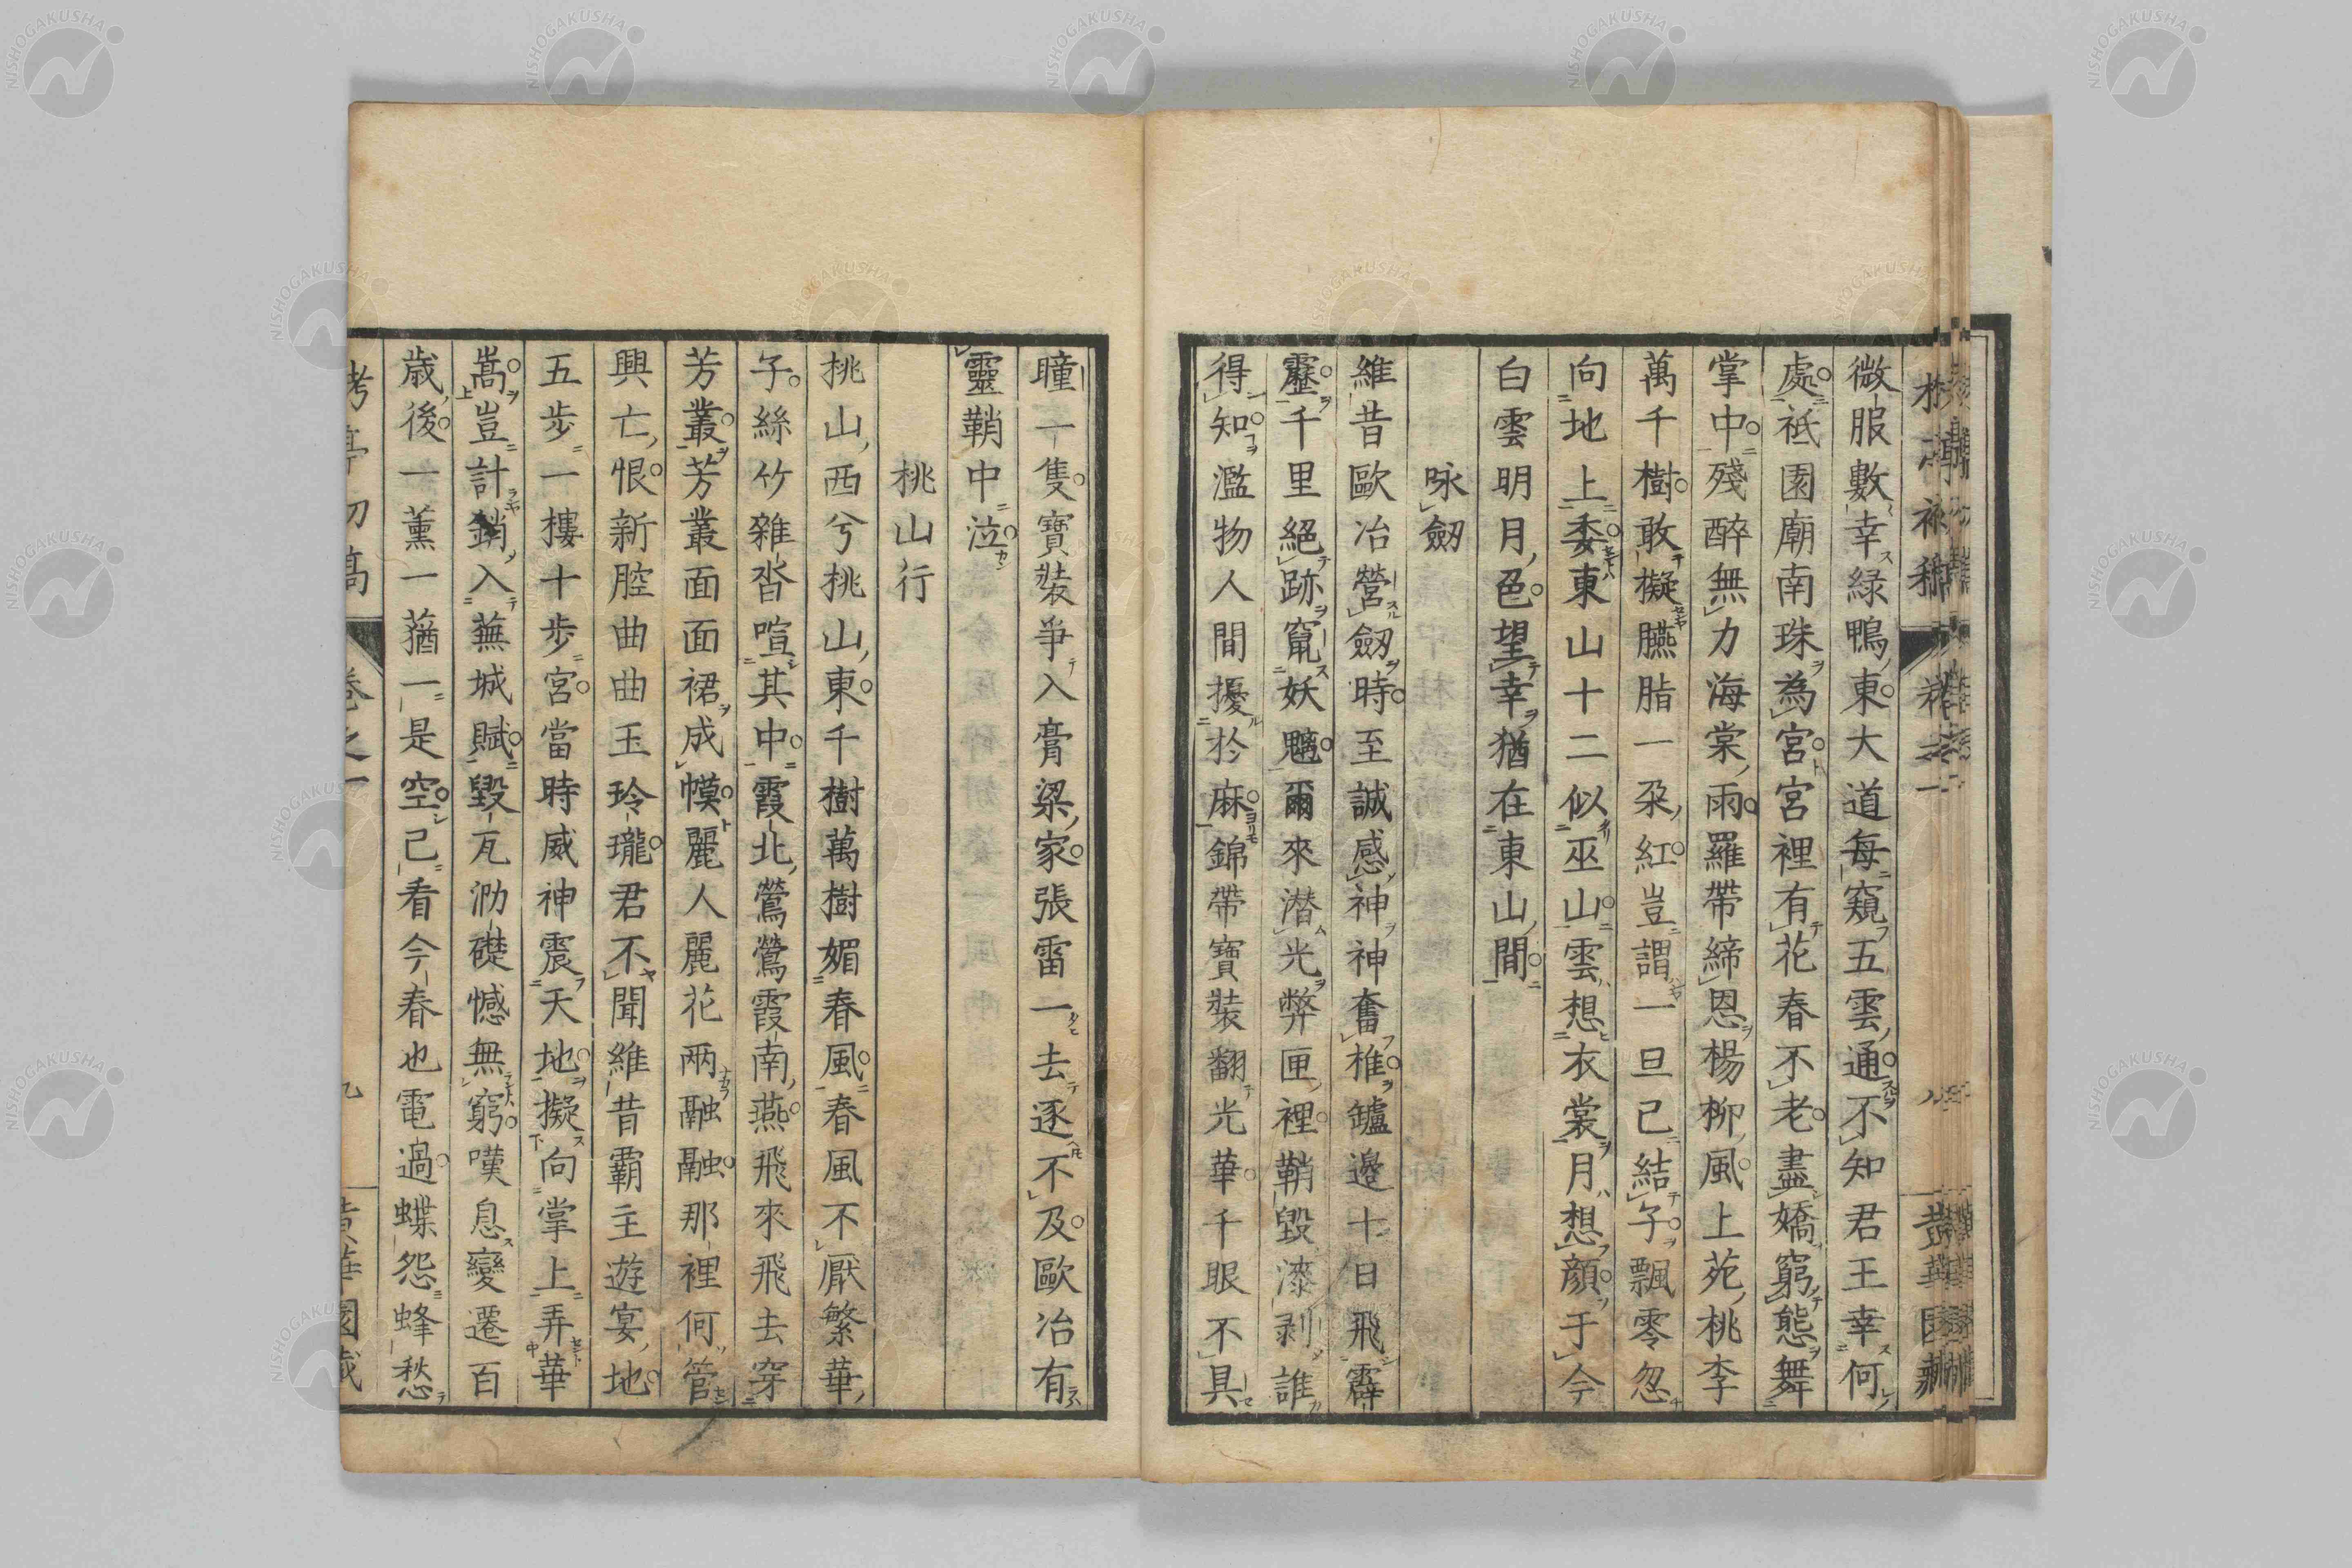 微服數幸緑鴨東大道毎窺五雲通不知君王幸何
處祗園廟南珠為宮宮裡有花春不老盡嬌窮態舞
掌中殘醉無力海棠雨羅帶締恩楊柳風上苑桃李
萬千樹敢擬臙脂一朶紅豈謂一旦已結子飄零忽
向地上委東山十二似巫山雲想衣裳月想顔于今
白雲明月色望幸猶在東山間
咏劔
維昔歐冶營劔時至誠感神神奮椎鑪邊十日飛霹
靂千里絕跡竄妖魑爾來潜光弊匣裡鞘毀漆剥誰
得知濫物人間擾於麻錦帶寶裝翻光華千眼不具
瞳一隻寶裝爭入膏粱家張雷一去逐不及歐冶有
靈鞘中泣
桃山行
桃山西兮桃山東千樹萬樹媚春風春風不厭繁華
子絲竹雜沓喧其中霞北鶯鶯霞南燕飛來飛去穿
芳叢芳叢面面裙成幙麗人麗花兩融融那裡何管
興亡恨新腔曲曲玉玲瓏君不聞維昔霸主遊宴地
五步一樓十步宮當時威神震天地擬向掌上弄華
嵩豈計銷入蕪城賦毀瓦泐礎憾無窮嘆息變遷百
歳後一薫一蕕一是空已看今春也電過蝶怨蜂愁
卷之一
九
黄華園藏